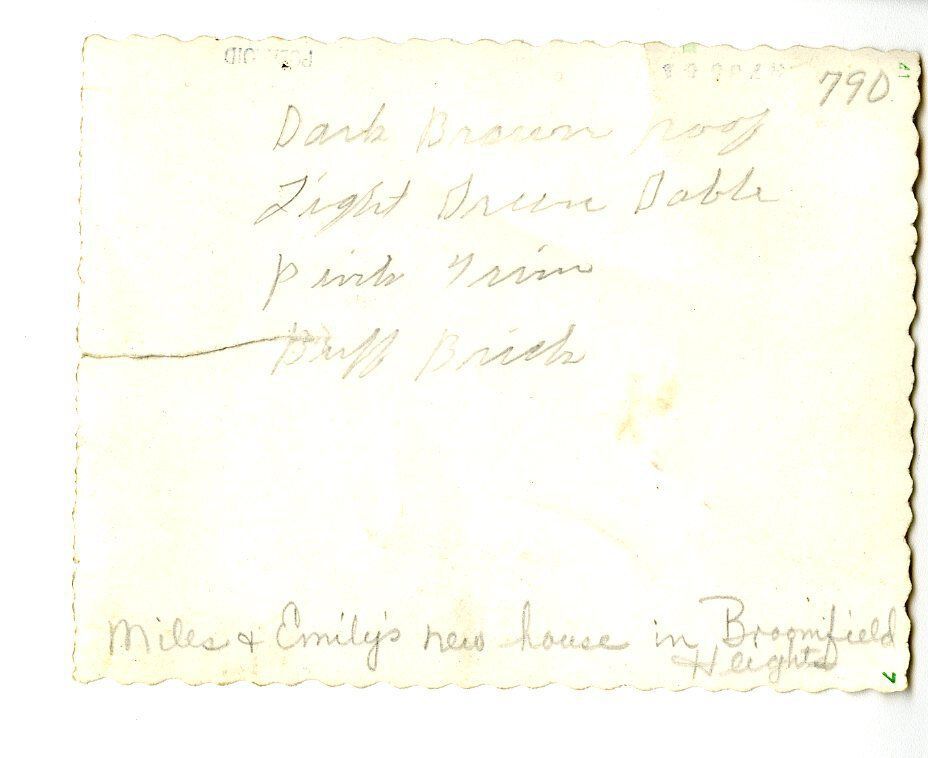 790
Dark Brown roof
Light Green Gable
Pink Trim
Buff Brick
Miles & Emily's new house in Broomfield
Heights
7